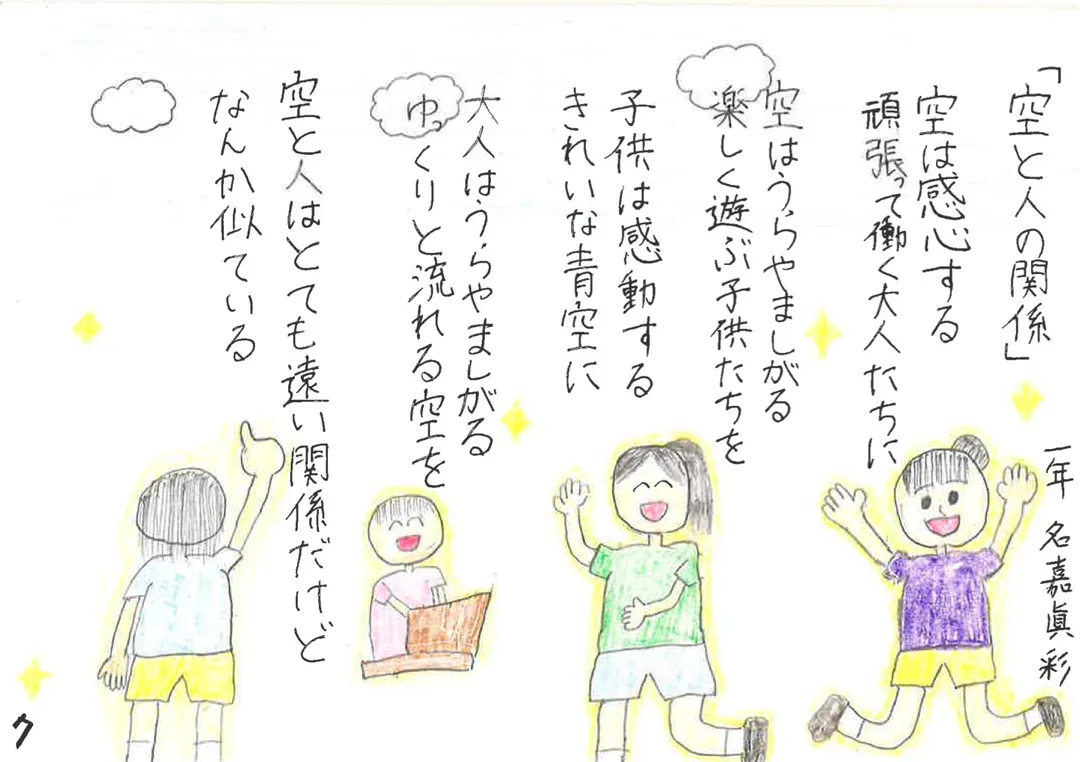 「空と人の関係」
一年 名嘉眞 彩
空は感心する
頑張って働く大人たちに
空はうらやましがる
楽しく遊ぶ子供たちを
子供は感動する
きれいな青空に
大人はうらやましがる
ゆっくりと流れる空を
空と人はとても遠い関係だけど
なんか似ている
ク